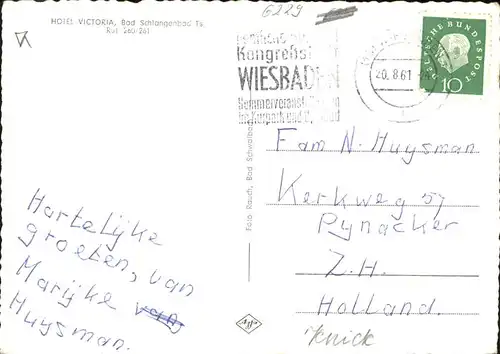 HOTEL VICTORIA, Bad Schlangenbad Ts.
Ruf 260/261
6229
Kongreßstadt
WIESBADEN
Sommerveranstaltungen
im Kurpark und
20.8.61
DEUTSCHE BUNDESPOST
10
Foto Rauth, Bad Schwalbach
Agfa
Hartelijke
groeten, van
Marijke van
Huysman.
Fam N. Huysman
Kerkweg 57
Pynacker
Z.H.
Holland.
Knick